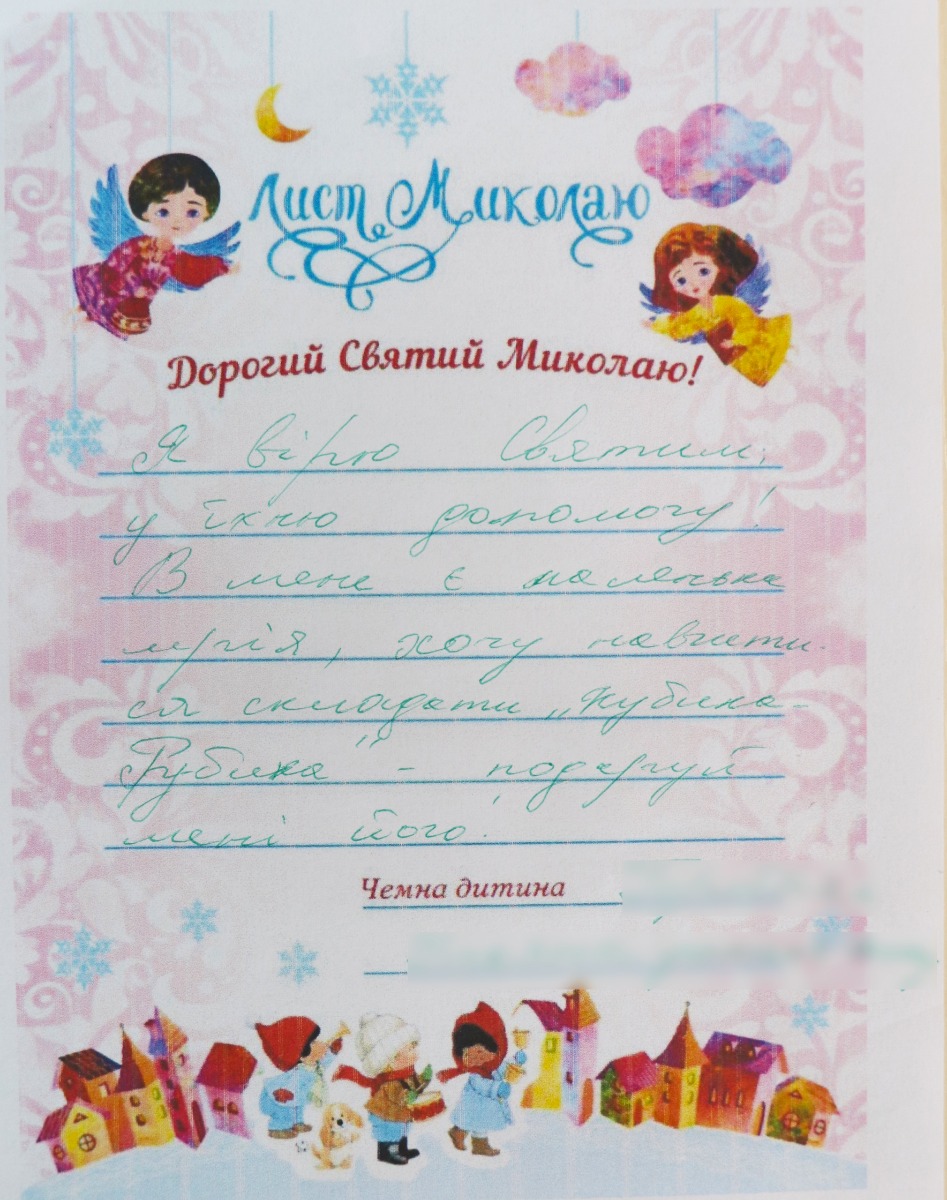 Лист Миколаю
Дорогий Святий Миколаю!
Я вірю Святим,
у їхню допомогу!
В мене є маленька
мрія, хочу навчити-
ся складати „Кубика-
Рубика" - подаруй
мені його.
Чемна дитина